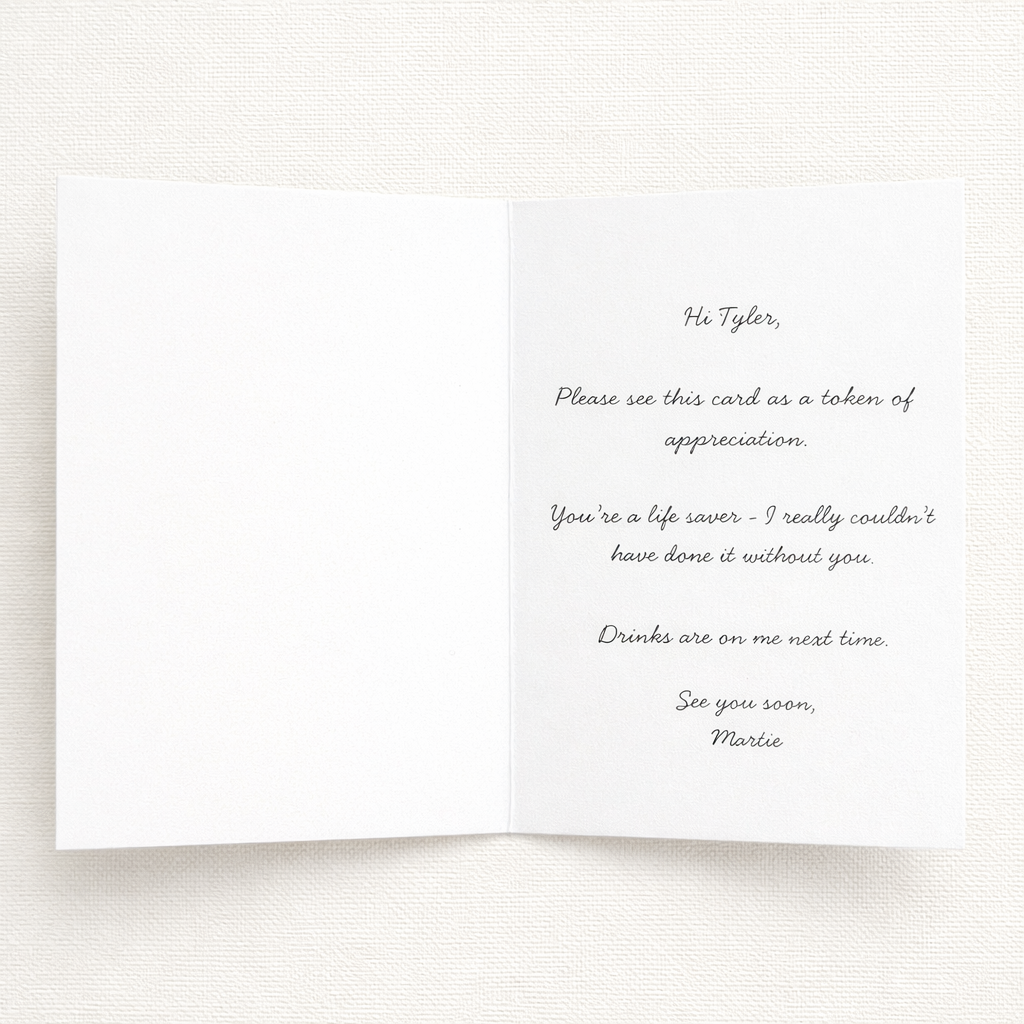 Hi Tyler,
Please see this card as a token of
appreciation.
You're a life saver - I really couldn't
have done it without you.
Drinks are on me next time.
See you soon,
Martie